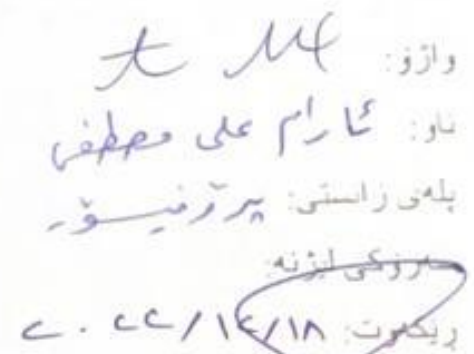 واژۆ:
ناو: ئارام علی مصطفی
پلەی زانستی: پرۆفیسۆر
سەرۆکی لیژنە:
ڕێکەوت: ٢٠٢٢/١٢/١٨